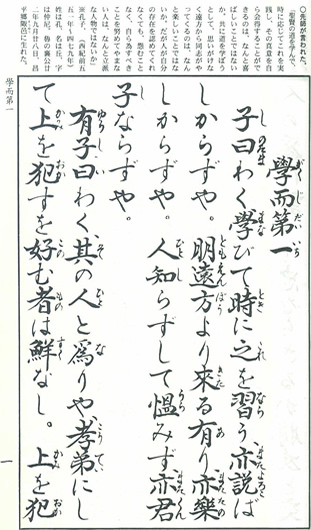 ○先師が言われた。
「聖賢の道を学んで、
時に応じてこれを実
践し、その真意を自
ら会得することがで
きるのは、なんと喜
ばしいことではない
か。共に道を学ぼう
として、思いがけな
く遠方から同志がや
ってくるのは、なん
と楽しいことではな
いか。だが人が自分
の存在を認めてくれ
なくても、怨むこと
なく、自ら為すべき
ことを努めてやまな
い人は、なんと立派
な人物ではないか」
※孔子（西紀前五
五一〜四七九年）
姓は孔、名は丘、字
は仲尼。魯の襄公廿
二年九月廿八日、昌
平郷陬邑に生れた。
學而第一
子曰わく、學びて時に之を習う、亦説ば
しからずや。朋遠方より來る有り、亦樂
しからずや。人知らずして慍みず、亦君
子ならずや。
有子曰わく、其の人と爲りや、孝弟にし
て上を犯すを好む者は鮮なし。上を犯
學而第一
一